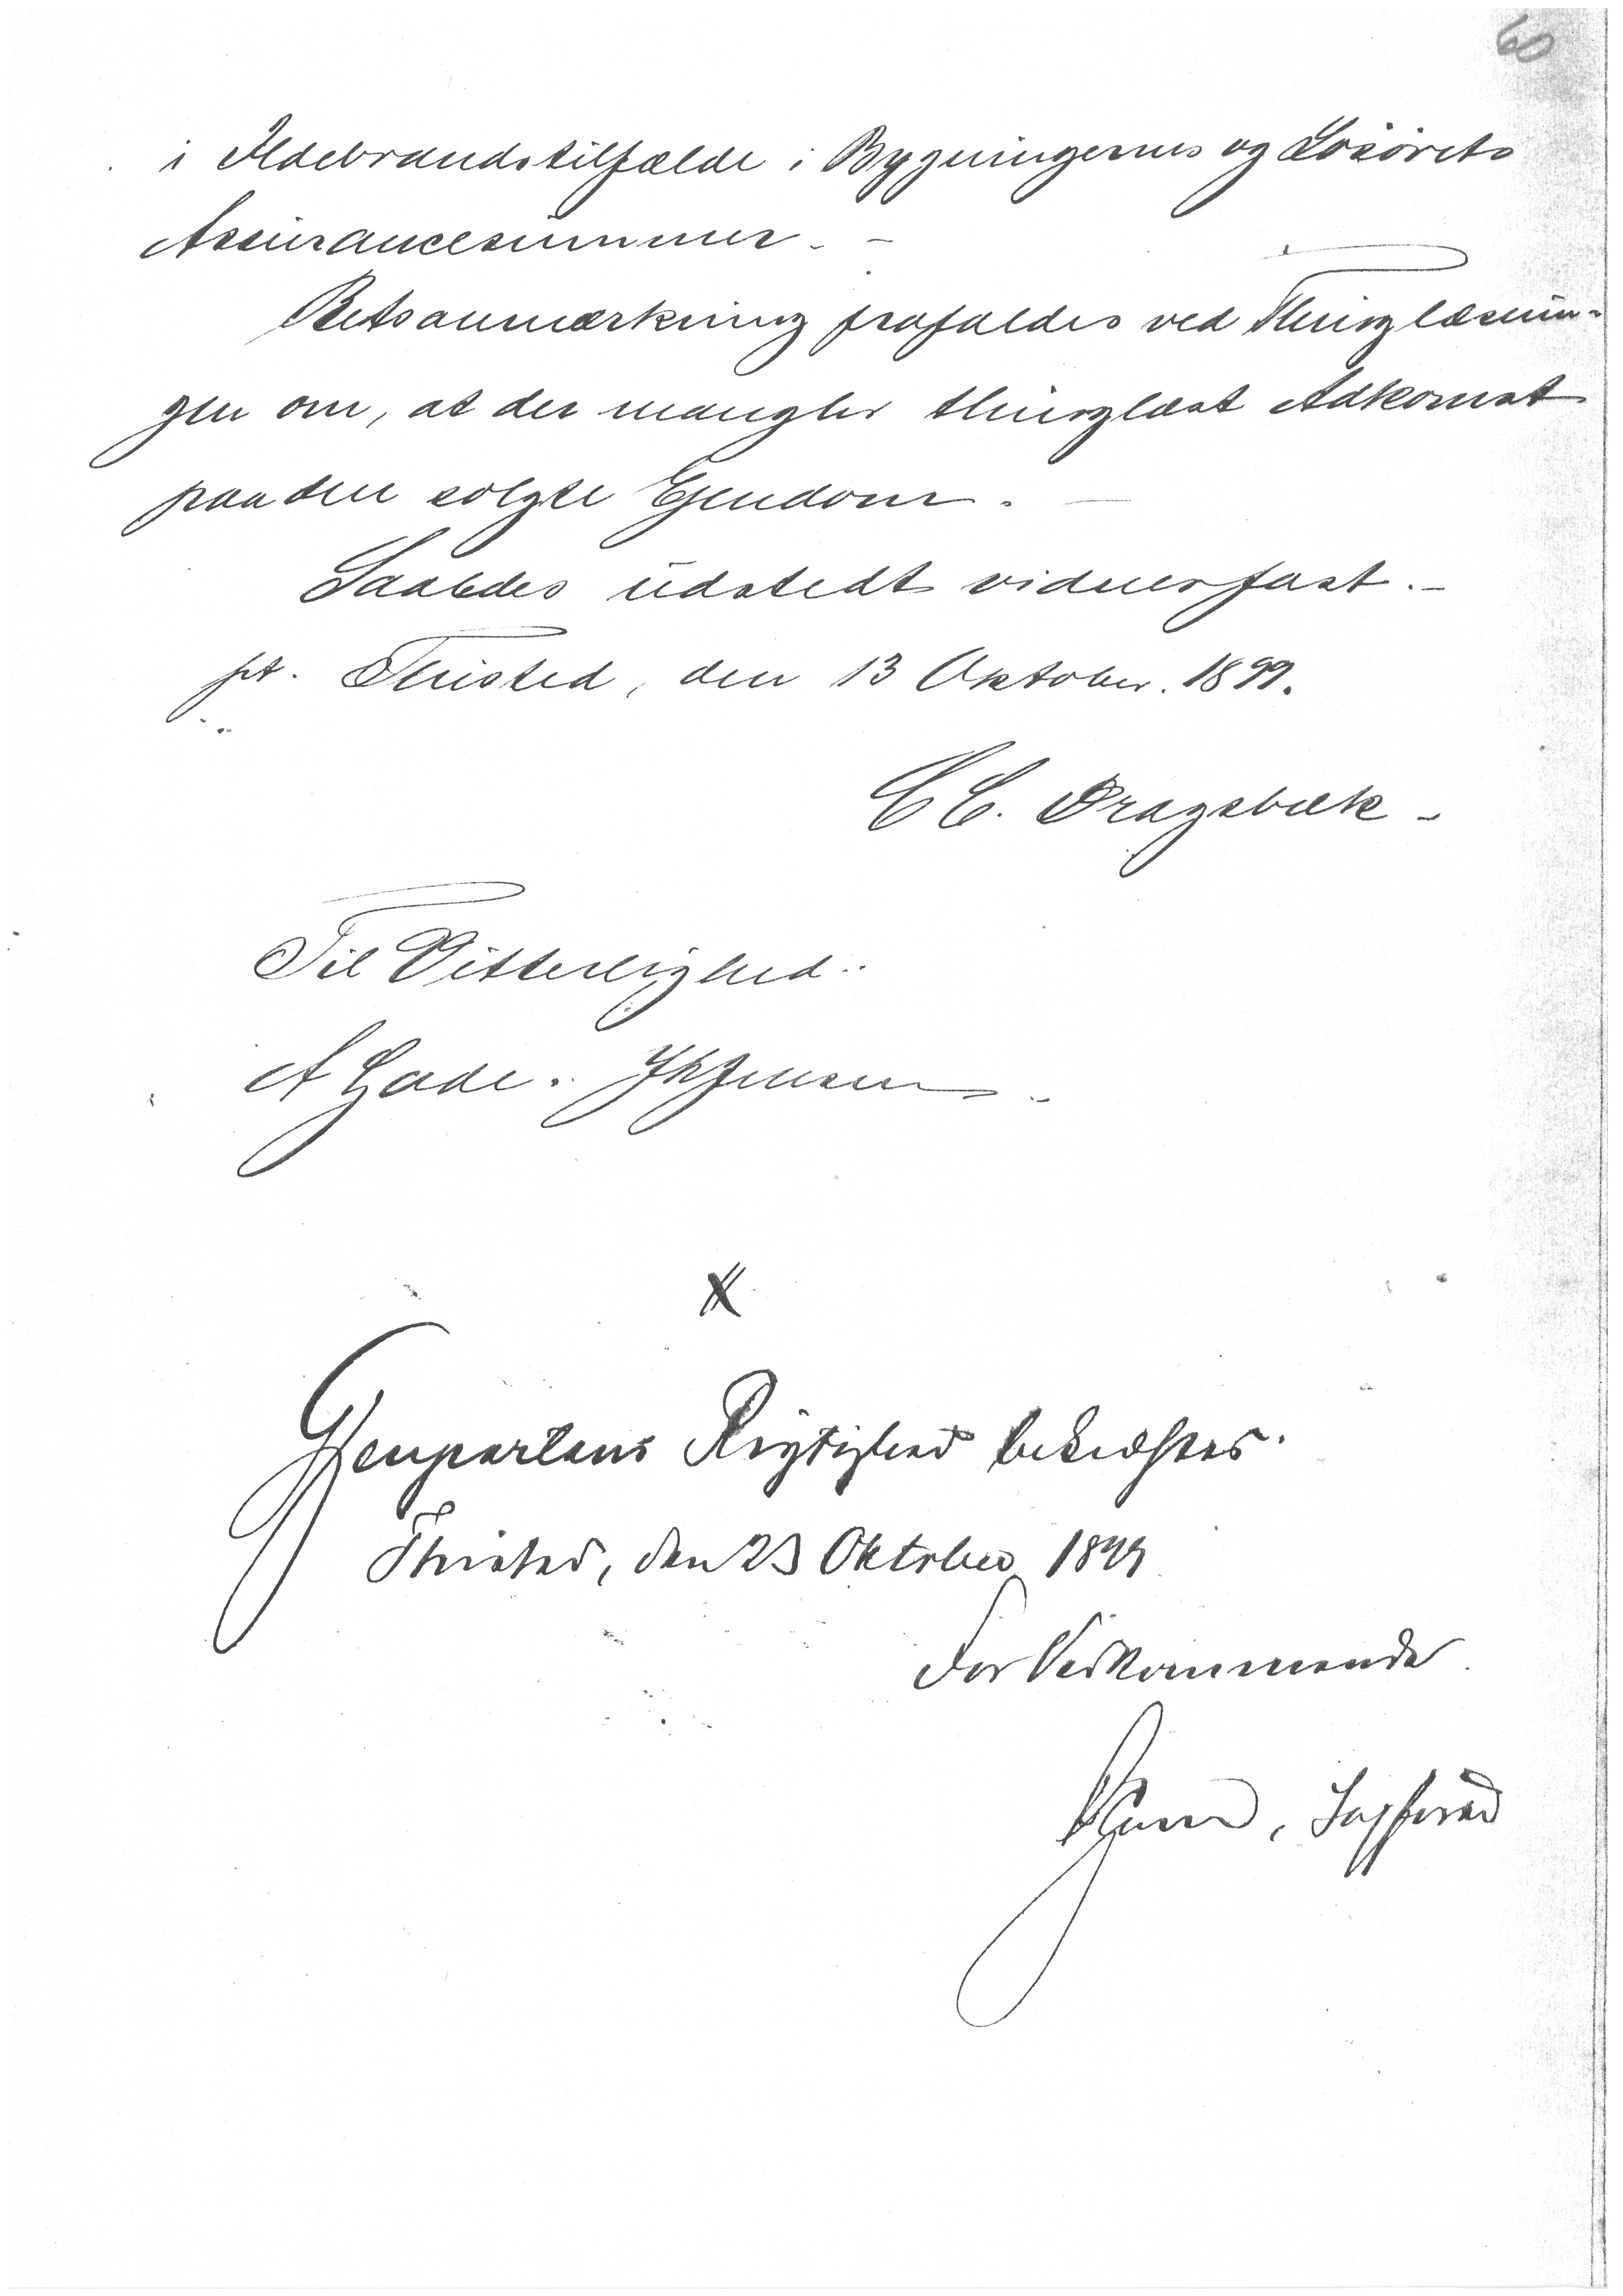 60
i Ildebrandstilfælde i Bygningernes og Løsørets
Assurancesummer. -
Retsanmærkning frafaldes ved Thinglæsnin-
gen om, at der mangler thinglæst Adkomst
paa den solgte Ejendom. -
Saaledes udstedt vidnesfast. -
pt. Thisted, den 13 Oktober. 1899.
C C. Dragsbæk -
Til Vitterlighed..
A Gade. JKJensen -
X
Gjenpartens Rigtighed bekræftes.
Thisted, den 23 Oktober 1899
For Vedkommende
, Sagfører